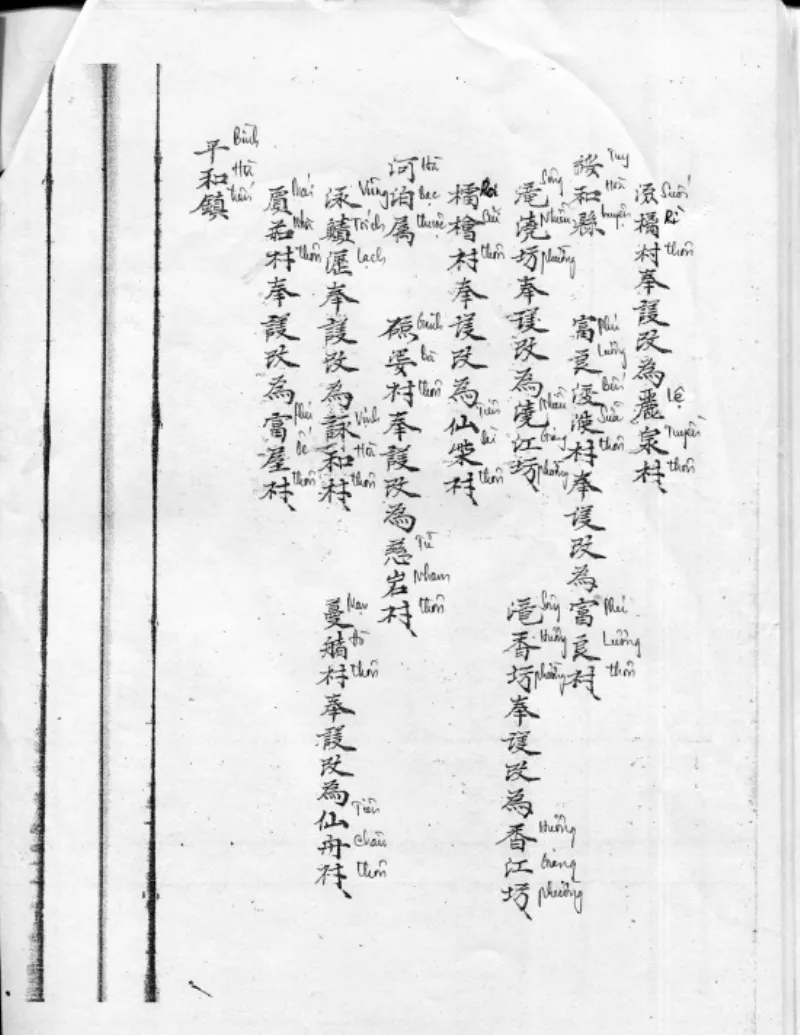 橘村奉護改為麗泉村
Suối Rì thôn
Lệ Tuyền thôn
綏和縣
Tuy Hòa huyện
富良 村奉護改為富良村
Phú Lương Bến Sứa thôn
Phú Lương thôn
滝澆坊奉護改為澆江坊
Sông Nhiễu phường
Nhiễu Giang phường
滝香坊奉護改為香江坊
Sông Hương phường
Hương Giang phường
橘檜村奉護改為仙柴村
thôn
Tiên Sài thôn
河泊属
Hà Bạc thuộc
婆村奉護改為慈岩村
Gành Bà thôn
Từ Nham thôn
泳 瀝奉護改為詠和村
Vũng Tích Lạch
Vịnh Hòa thôn
村奉護改為仙舟村
thôn
Tiên Châu thôn
村奉護改為富屋村
Nhà thôn
Phú Ốc thôn
平和鎮
Bình Hòa trấn